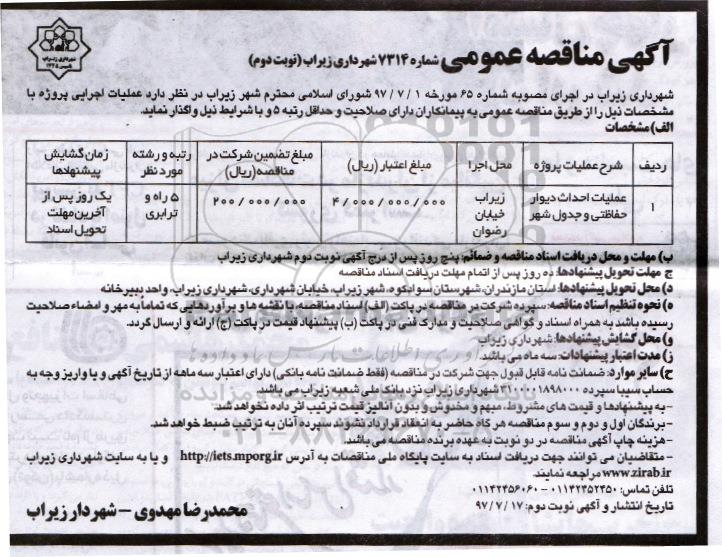 آگهی مناقصه عمومی شماره ۷۳۱۴ شهرداری زیراب (نوبت دوم)
شهرداری زیراب در اجرای مصوبه شماره ۶۵ مورخه ۹۷/۷/۱ شورای اسلامی محترم شهر زیراب در نظر دارد عملیات اجرایی پروژه با
مشخصات ذیل را از طریق مناقصه عمومی به پیمانکاران دارای صلاحیت و حداقل رتبه ۵ و با شرایط ذیل واگذار نماید.
الف) مشخصات
ردیف شرح عملیات پروژه محل اجرا مبلغ اعتبار (ریال) مبلغ تضمین شرکت در مناقصه (ریال) رتبه و رشته مورد نظر زمان گشایش پیشنهادها
۱ عملیات احداث دیوار حفاظتی و جدول شهر زیراب خیابان رضوان ۴/۰۰۰/۰۰۰/۰۰۰ ۲۰۰/۰۰۰/۰۰۰ ۵ راه و ترابری یک روز پس از آخرین مهلت تحویل اسناد
ب) مهلت و محل دریافت اسناد مناقصه و ضمائم: پنج روز پس از درج آگهی نوبت دوم شهرداری زیراب
ج مهلت تحویل پیشنهادها: ده روز پس از اتمام مهلت دریافت اسناد مناقصه
د) محل تحویل پیشنهادها: استان مازندران، شهرستان سوادکوه، شهر زیراب، خیابان شهرداری، شهرداری زیراب، واحد دبیرخانه
ه) نحوه تنظیم اسناد مناقصه: سپرده شرکت در مناقصه در پاکت (الف) اسناد مناقصه، با نقشه ها و برآوردهایی که تماما به مهر و امضاء صلاحیت
رسیده باشد به همراه اسناد و گواهی صلاحیت و مدارک فنی در پاکت (ب) پیشنهاد قیمت در پاکت (ج) ارائه و ارسال گردد.
و) محل گشایش پیشنهادها: شهرداری زیراب
ز) مدت اعتبار پیشنهادات: سه ماه می باشد.
ح) سایر موارد: ضمانت نامه قابل قبول جهت شرکت در مناقصه (فقط ضمانت نامه بانکی) دارای اعتبار سه ماهه از تاریخ آگهی و یا واریز وجه به
حساب سیبا سپرده ۳۱۰۰۰۰۱۸۹۸۰۰۰ شهرداری زیراب نزد بانک ملی شعبه زیراب می باشد.
- به پیشنهادها و قیمت های مشروط، مبهم و مخدوش و بدون آنالیز قیمت ترتیب اثر داده نخواهد شد.
- برندگان اول و دوم و سوم مناقصه هر گاه حاضر به انعقاد قرارداد نشوند سپرده آنان به ترتیب ضبط خواهد شد.
- هزینه چاپ آگهی مناقصه در دو نوبت به عهده برنده مناقصه می باشد.
- متقاضیان می توانند جهت دریافت اسناد به سایت پایگاه ملی مناقصات به آدرس http://iets.mporg.ir و یا به سایت شهرداری زیراب
www.zirab.ir مراجعه نمایند.
تلفن تماس: ۰۱۱۴۲۴۵۲۴۵۰ - ۰۱۱۴۲۴۵۶۰۶۰
تاریخ انتشار و آگهی نوبت دوم: ۹۷/۷/۱۷
محمدرضا مهدوی - شهردار زیراب